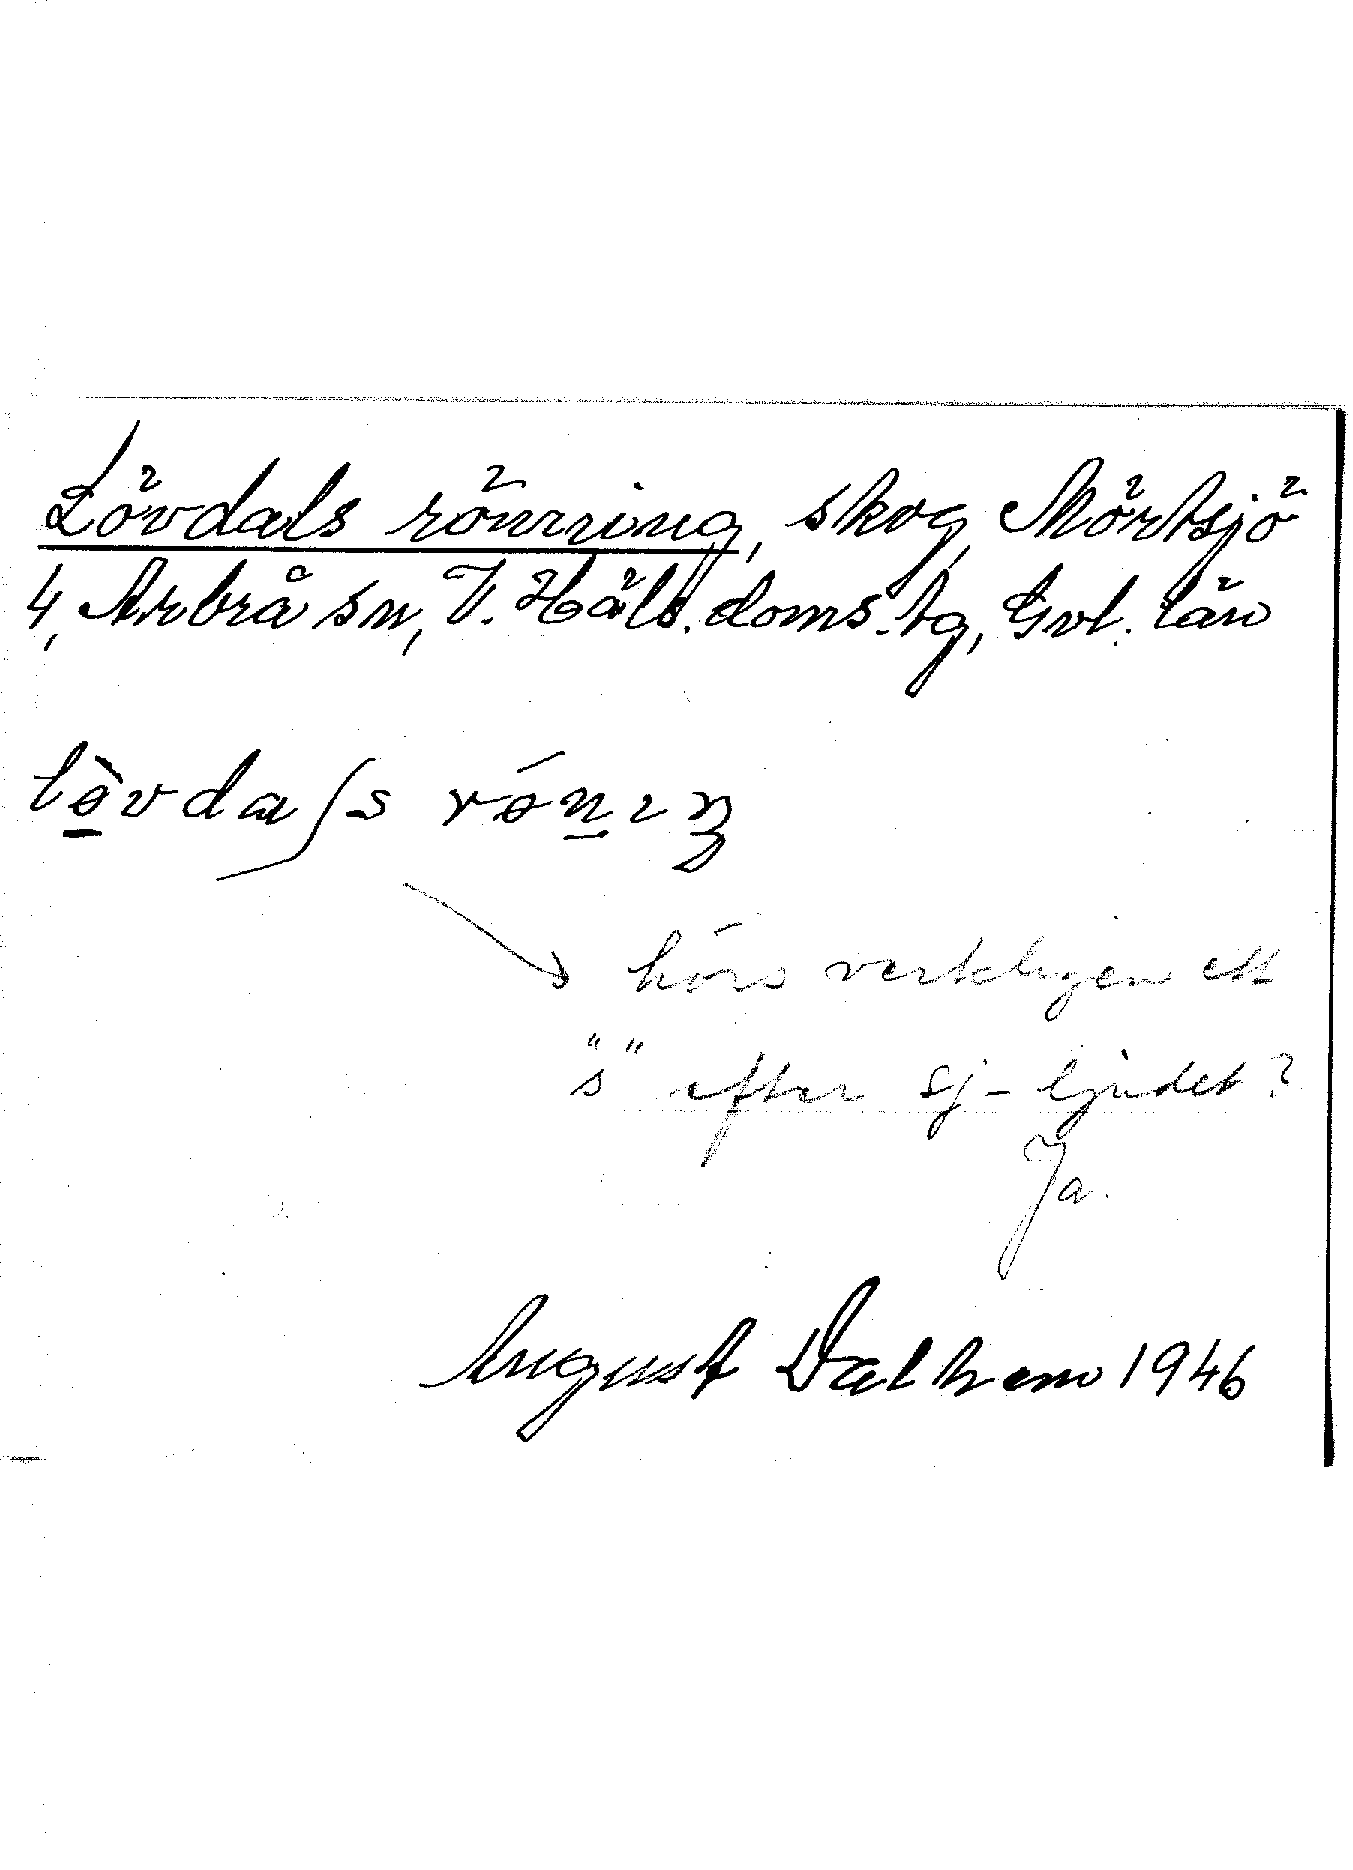 Lövdals rönning, skog, Mörtsjö
4, Arbrå sn, V. Häls. doms.tg, Gvl. län
lövdaʃs rónıŋ
hörs verkligen ett
"s" efter sj-ljudet?
Ja.
August Dalhem 1946